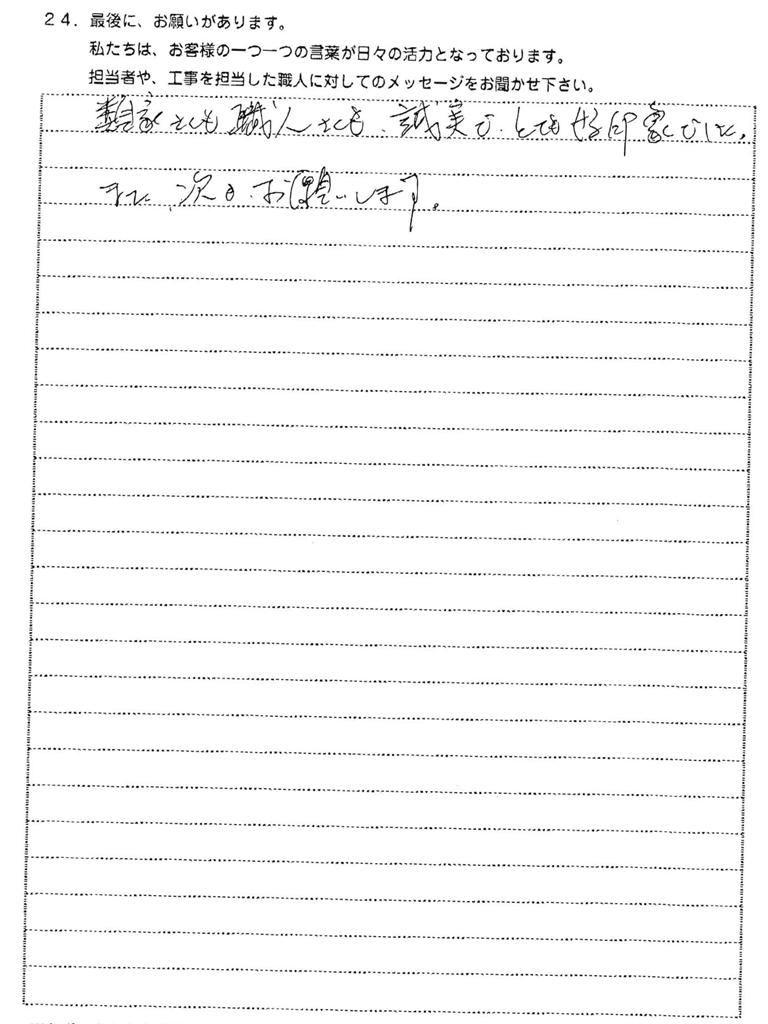 24. 最後に、お願いがあります。
私たちは、お客様の一つ一つの言葉が日々の活力となっております。
担当者や、工事を担当した職人に対してのメッセージをお聞かせ下さい。
類家さんも職人さんも、誠実で、とても好印象でした。
また、次も、お願いします。